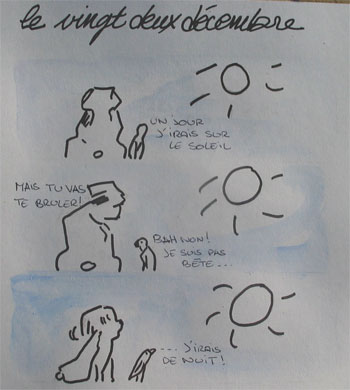 le vingt deux décembre
UN JOUR
J'IRAIS SUR
LE SOLEIL
MAIS TU VAS
TE BRULER!
BAH NON!
JE SUIS PAS
BÊTE...
...J'IRAIS
DE NUIT!